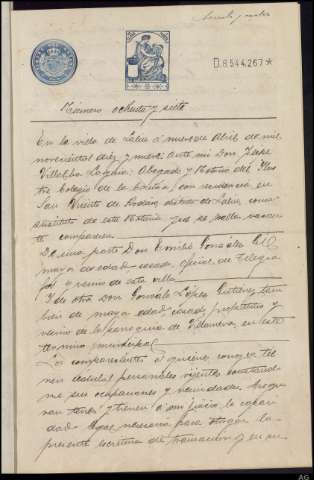 D.8544.267*
Número ochenta y siete
En la villa de Lalín á nueve de Abril de mil
novecientos diez y nueve: ante mí Don José
Villalba Abogado y Notario del Ilus
tre Colegio de la Coruña, con residencia en
San distrito de Lalín, como
sustituto de esta Notaría que se halla vacan
te comparecen
De una parte Don González
mayor de edad, casado, oficial de Telégra
fos y vecino de esta villa
Y de otra Don Gonzalo López Gutiérrez tam
bién de mayor edad, casado, propietario y
vecino de la parroquia de Villanueva, en este
término municipal
Los comparecientes á quienes conozco, tie
nen cédulas personales vigentes
me sus ocupaciones y vecindades, asegu
ran tener y tienen á mi juicio la capaci
dad legal necesaria para otorgar la
presente escritura de transacción y en su
AG